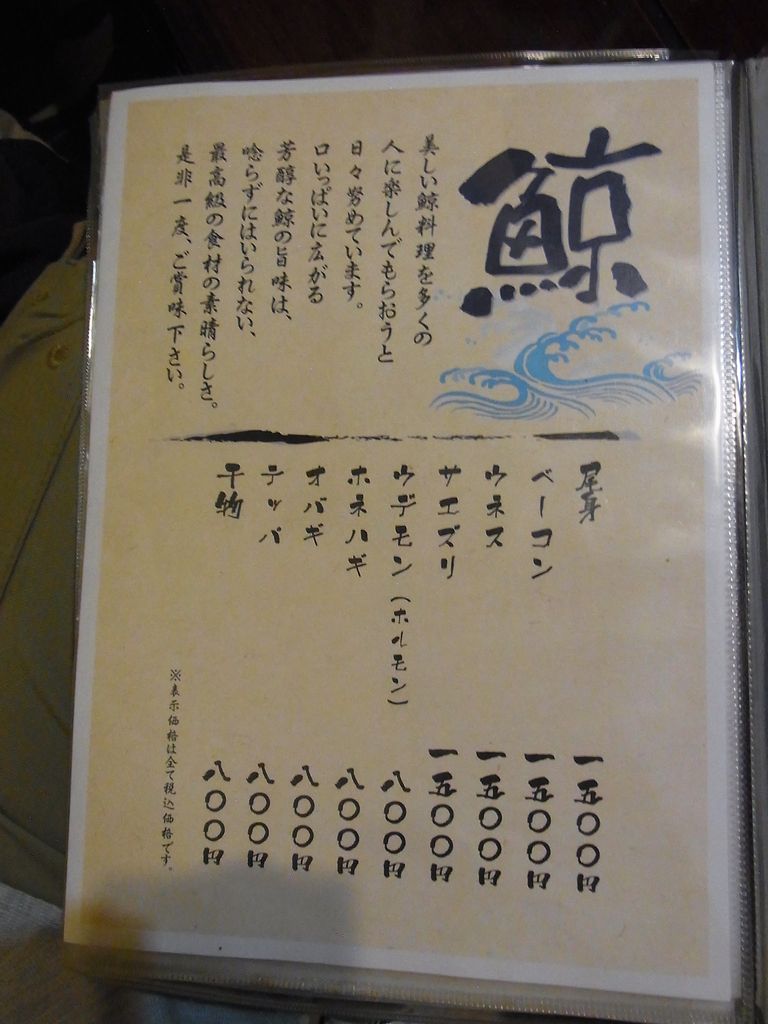 鯨
美しい鯨料理を多くの
人に楽しんでもらおうと
日々努めています。
口いっぱいに広がる
芳醇な鯨の旨味は、
唸らずにはいられない、
最高級の食材の素晴らしさ。
是非一度、ご賞味下さい。
尾身 一五〇〇円
ベーコン 一五〇〇円
ウネス 一五〇〇円
サエズリ 一五〇〇円
ウデモン（ホルモン） 八〇〇円
ホネハギ 八〇〇円
オバギ 八〇〇円
テッパ 八〇〇円
干物 八〇〇円
※表示価格は全て税込価格です。